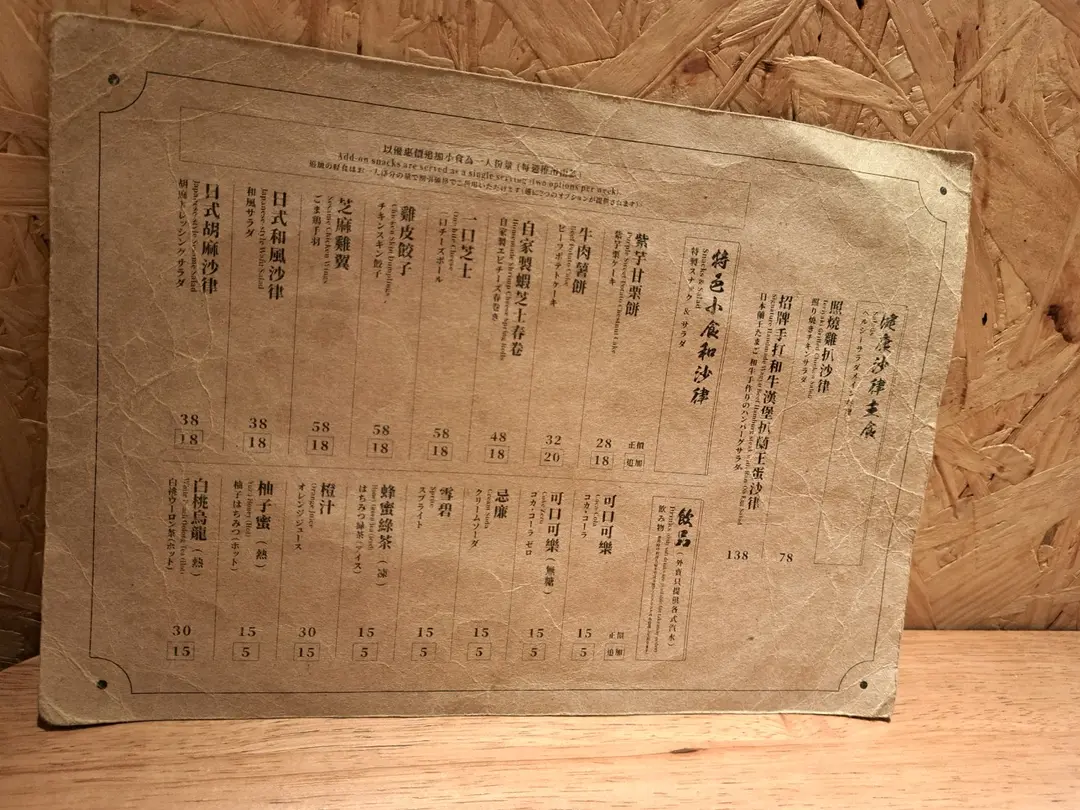 健康沙律主食
Salads
ヘルシーサラダメイン料理
照燒雞扒沙律
Teriyaki Grilled Chicken Salad
照り焼きチキンサラダ
78
招牌手打和牛漢堡扒蘭王蛋沙律
日本蘭王たまご 和牛手作りのハンバーグサラダ
138
特色小食和沙律
Snacks & Salad
特製スナック & サラダ
正價
追加
紫芋甘栗餅
Purple Sweet Potato Chestnut Cake
紫芋栗ケーキ
28
18
牛肉薯餅
Beef Potato Cake
ビーフポテトケーキ
32
20
自家製蝦芝士春卷
Homemade Shrimp Cheese Spring Rolls
自家製エビチーズ春巻き
48
18
一口芝士
One bite Cheese
一口チーズボール
58
18
雞皮餃子
Chicken Skin Dumplings
チキンスキン餃子
58
18
芝麻雞翼
Sesame Chicken Wings
ごま鶏手羽
58
18
日式和風沙律
Japanese-style Wafu Salad
和風サラダ
38
18
日式胡麻沙律
Japanese-style Sesame Salad
胡麻ドレッシングサラダ
38
18
以優惠價追加小食為一人份量
Add-on snacks are served as a single serving (two options per week).
飲品
(外賣只提供各式汽水)
飲み物
正價
追加
可口可樂
Coca Cola
コカ・コーラ
15
5
可口可樂(無糖)
Coke Zero
コカ・コーラ ゼロ
15
5
忌廉
Cream Soda
クリームソーダ
15
5
雪碧
Sprite
スプライト
15
5
蜂蜜綠茶(凍)
Honey Green Tea (Iced)
はちみつ緑茶(アイス)
15
5
橙汁
Orange Juice
オレンジジュース
30
15
柚子蜜(熱)
Yuzu Honey (Hot)
柚子はちみつ(ホット)
15
5
白桃烏龍(熱)
White Peach Oolong Tea (Hot)
白桃ウーロン茶(ホット)
30
15